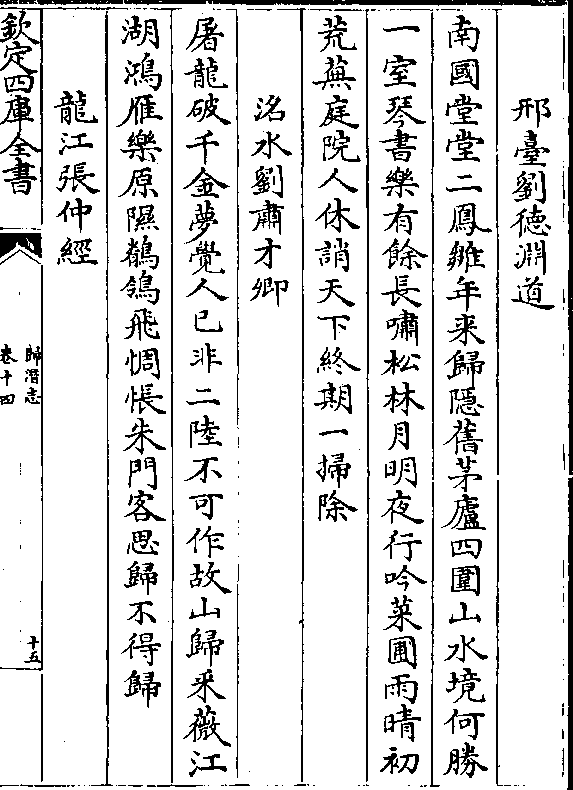 邢臺劉德淵道
南國堂堂二鳳雛年来歸隱舊茅廬四圍山水境何勝
一室琴書樂有餘長嘯松林月明夜行吟菜圃雨晴初
荒蕪庭院人休誚天下終期一掃除
洺水劉肅才卿
屠龍破千金夢覺人已非二陸不可作故山歸采薇江
湖鴻雁樂原隰鶺鴒飛惆悵朱門客思歸不得歸
龍江張仲經
欽定四庫全書
歸潛志
卷十四
十五